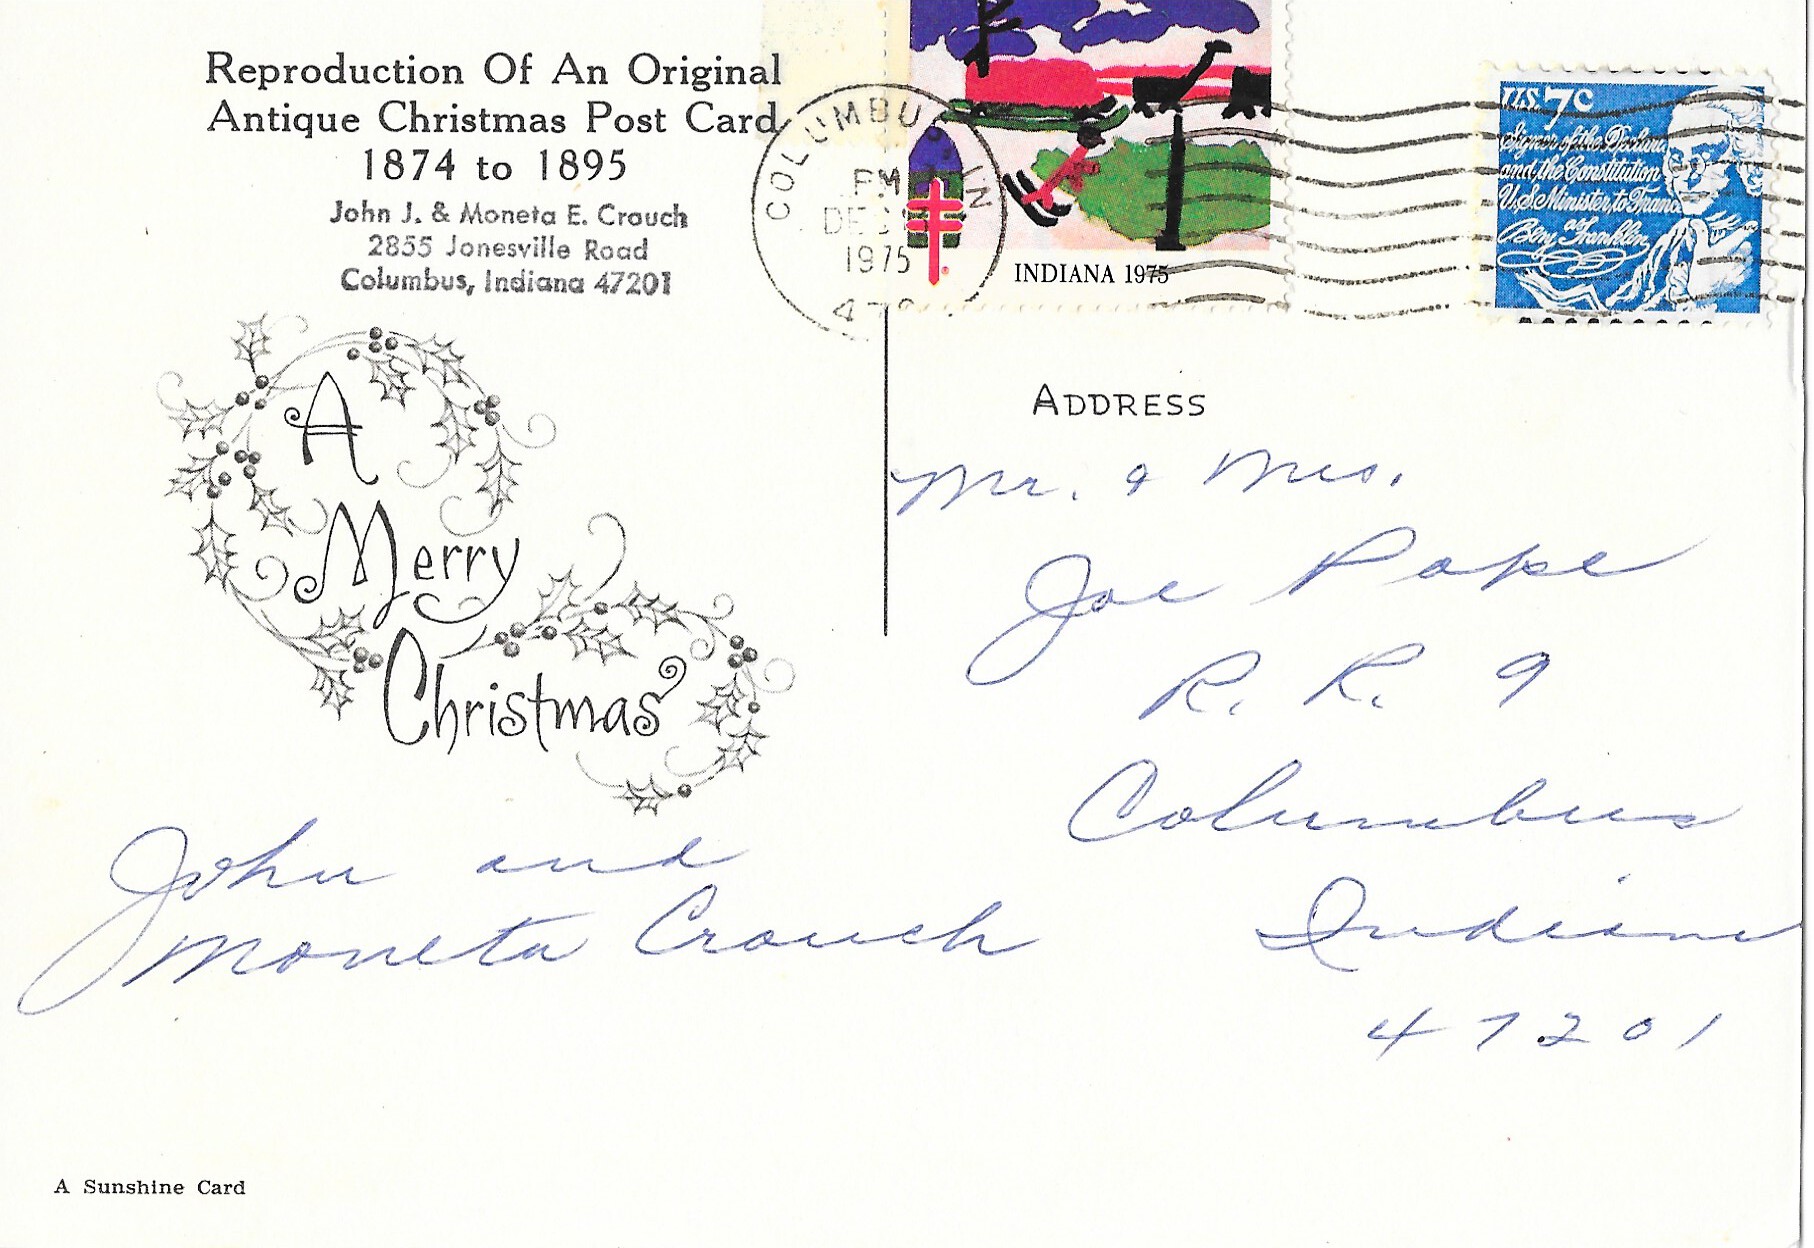 Reproduction Of An Original
Antique Christmas Post Card
1874 to 1895
John J. & Moneta E. Crouch
2855 Jonesville Road
Columbus, Indiana 47201
A
Merry
Christmas
John and
Moneta Crouch
A Sunshine Card
COLUMBU IN
PM
DEC
1975
INDIANA 1975
U.S. 7c
Signer of the Declara
and the Constitution
U.S. Minister to France
as
Benj Franklin
ADDRESS
Mr. & Mrs.
Joe Pope
R. R. 9
Columbus
Indiana
47201